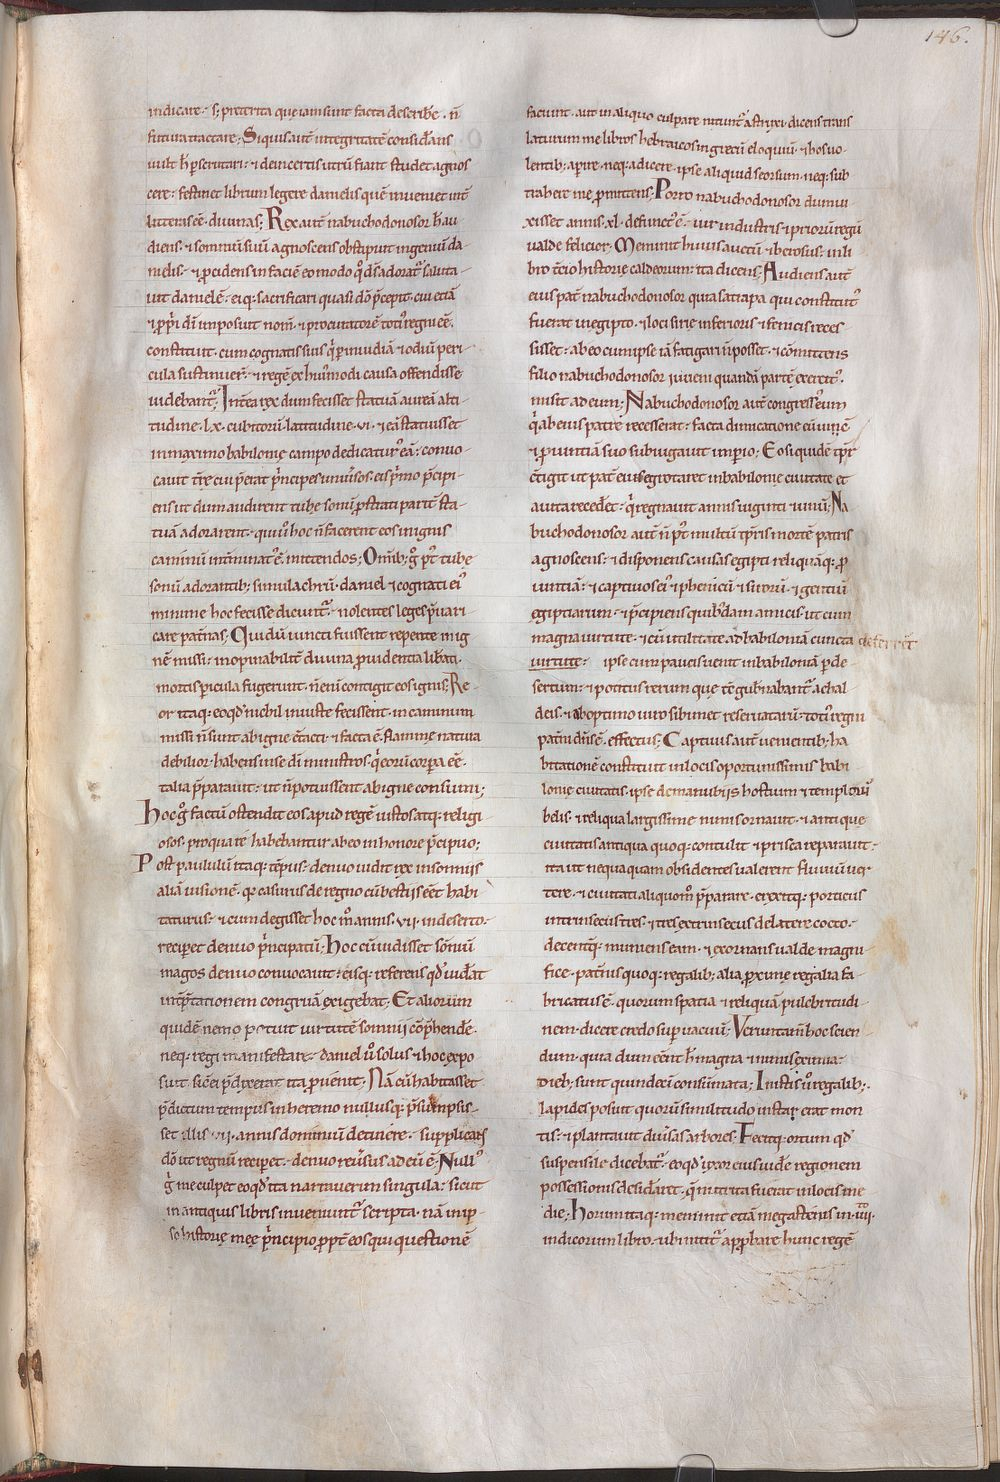 146.
indicare· s; preterita que iam sunt facta describe͞· n̄
futura tractare; Siquis aut̄ integritatē consid̄ans
uult h̄ pscrutari· ⁊ deincertis utrū fiant studet agnos
cere· festinet librum legere danielis quē inueniet int̄
litteras eē diuinas; Rex aut̄ nabuchodonosor h̄ au
diens· ⁊ somniū suū agnoscens obstipuit ingeniū da
nielis· ⁊ pcidens in faciē eo modo q͛ d̄s adorat͛ saluta
uit danielē· eiq; sacrificari quasi dō p̄cepit· cui etiā
⁊ pp̄ri dī imposuit nom̄· ⁊ procuratorē toti͛ regni eē
constituit· cum cognatis suis q͛ p inuidiā ⁊ odiū peri
cula sustinuer̄· ⁊ regē ex hui͛modi causa offendisse
uidebant͛; Int̄ea rex dum fecisset statuā aureā alti
tudine· lx· cubitorū latitudine· vi· ⁊ eā statuisset
in maximo babilonię campo dedicatur͛ eā· conuo
cauit t͞re cui p̄erat p͛ncipes uniu͛sos· eis p͛mo p̄cipi
ens ut dum audirent tubę sonū pstrati parit̄ sta
tuā adorarent· qui u͛ hoc n̄ facerent eos in ignis
caminū int̄minat͛ ē mittendos; Omīb; g͛ p͛t tubę
sonū adorantib; simulachrū· daniel ⁊ cognati ei͛
minime hoc fecisse dicunt͛· nolentes leges p̄uari
care pat͞nas; Qui dū iuncti fuissent repente in ig
nē missi· inopinabilit̄ diuina puidentia lib̄ati
mortis picula fugerunt· n̄ enī contigit eos ignis; Re
or itaq; eo qd nichil iniuste fecissent· in caminum
missi n̄ sunt ab igne c̄tacti· ⁊ facta ē flammę natura
debilior· habens in se dī ministros q͛ eorū corpora eē
talia p̄parauit· ut n̄ potuissent ab igne consumi;
Hoc g͛ factū ostendit eos apud regē iustos atq; religi
osos· pro qua re habebantur ab eo in honore p̄cipuo;
Post paululū itaq; tēpus· denuo uidit rex in somniis
aliā uisionē· q͛ casurus de regno cū bestiis eēt habi
taturus· ⁊ cum degisset hoc m̊ annis· vii· in deserto·
recip̄et denuo p͛ncipatū; Hoc cū uidisset sōniū
magos denuo conuocauit· eisq; referens qd͛ uid̄at
int̄p̄tationem congruā exigebat; Et aliorum
quidē nemo potuit uirtutē somnii cōp̄hende͞·
neq; regi manifestare· daniel u͛ solus ⁊ hoc expo
suit· sic̄ ei p̄dixerat ita puenit; Nā cū habitasset
p̄dictum tempus in heremo nullusq; p̄sūmpsis
set illis· vii· annis dominiū detinere· supplicans
dō ut regnū recip̄et· denuo reu͛sus ad eū ē; Null͛
g͛ me culpet eo qd ita narrauerim singula· sicut
in antiquis libris inueniunt͛ scripta· nā in ip
so historię meę p͛ncipio ppt̄ eos qui questionē
faciunt aut in aliquo culpare nitunt͛ astrinxi· dicens trans
laturum me libros hebraicos in grecū eloquiū· ⁊ hos uo
lentib; apire· neq; adicere ipse aliquid seorsum· neq; sub
trahere me pmittens; Porro nabuchodonosor dum ui
xisset annis· xl· defunct͛ ē· uir industris ⁊ priorū regū
ualde felicior; Meminit hui͛ sauctū ⁊ berosus· in li
bro t͞cio historię caldeorum· ita dicens; Audiens aut̄
eius pat̄ nabuchodonosor quia satrapa qui constitut͛
fuerat in egipto· ⁊ loci sirię inferioris ⁊ fenicis reces
sisset· ab eo cum ipse iā fatigari n̄ posset· ⁊ cōmittens
filio nabuchodonosor iuueni quandā partē exercit͛
misit ad eum; Nabuchodonosor aut̄ congress͛ eum
q͛ ab eius patre recesserat· facta dimicatione eū uincē
⁊ puintiā suo subiugauit imp̄io; Eo siquidē tp̄r
c̄tigit ut pat͞ eius egrotaret in babilonię ciuitate et
a uita recedet· q͛ regnauit annis uiginti ⁊ unū; Na
buchodonosor aut̄ n̄ p͛t multū tp̄ris mortē patris
agnoscens· ⁊ disponens causas egipti reliquaq; p
uintiā· ⁊ captiuos ei͛ ⁊ phenicū ⁊ sirorū· ⁊ gentiū
egiptiarum· ⁊ p̄cipiens quib͛dam amicis· ut cum
magna uirtute· ⁊ cū utilitate ad babiloniā cuncta deferret̄
uirtute· ipse cum paucis uenit in babiloniā p de
sertum· ⁊ potitus rerum que t͞c gub̄nabant͛ a chal
deis· ⁊ ab optimo uiro sibimet reseruatarū· toti͛ regni
pat͞ni dn̄s ē effectus; Captiuis aut̄ uenientib; ha
bitationē constituit in locis oportunissimis babi
lonię ciuitatis· ipse de manubiis hostium ⁊ templum
belis· ⁊ reliqua largissime nimis ornauit· ⁊ antique
ciuitatis antiqua quoq; contulit· ⁊ prisca reparauit·
ita ut nequaquam obsidentes ualerent fluuiū uer
tere· ⁊ ciuitati aliquom̊ p̄parare· erexitq; porticus
intrinsecus tres· ⁊ tres extrinsecus de latere cocto·
decentq; muniens eam· ⁊ exornans ualde magni
fice· pat͞nis quoq; regalib; alia pxime regalia fa
bricatus ē· quorum spatia ⁊ reliquā pulchritudi
nem· dicere credo supuacuū; Veruntam̄ hoc scien
dum· quia dum eēnt h̄ magna ⁊ nimis eximia·
dieb; sunt quindecī consūmata; In istis u͛ regalib;
lapides posuit quorū similitudo instar erat mon
tis· ⁊ plantauit diu͛sas arbores· Fecitq; ortum qd͛
suspensile dicebat͛· eo qd͛ uxor eius uid̄e regionem
possessionis desid̄aret· q͛ nutrita fuerat in locis me
die; Horum itaq; meminit etiā megastenis in· iiii·
indicorum libro· ubi nitit͛ apprbare hunc regē